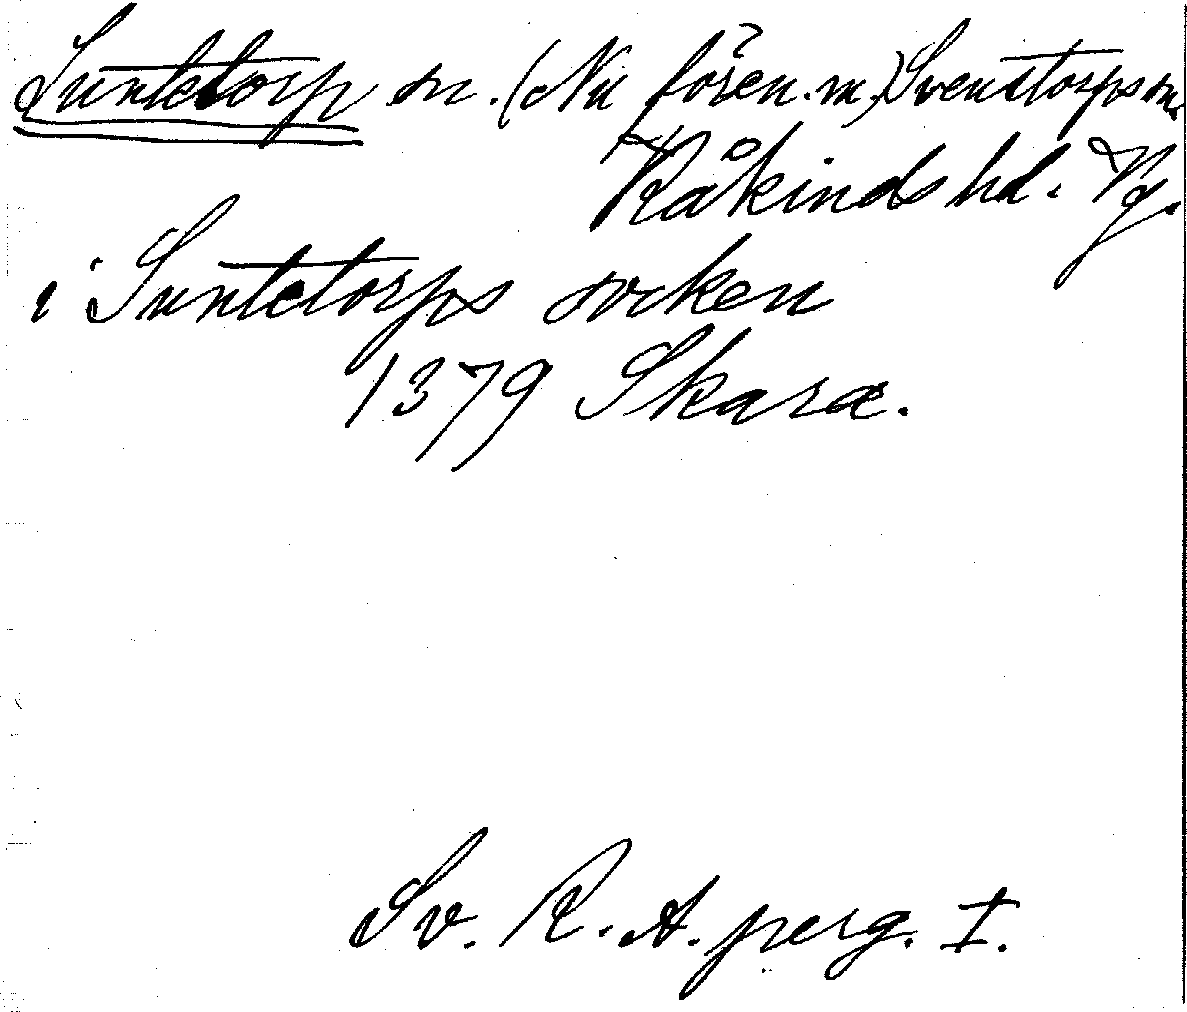 Suntetorp sn. (Nu fören. m.) Svenstorps sn.
?
Kåkinds hd. Vg.
i Suntetorps socken
1379 Skara.
Sv. R. A. perg. I.